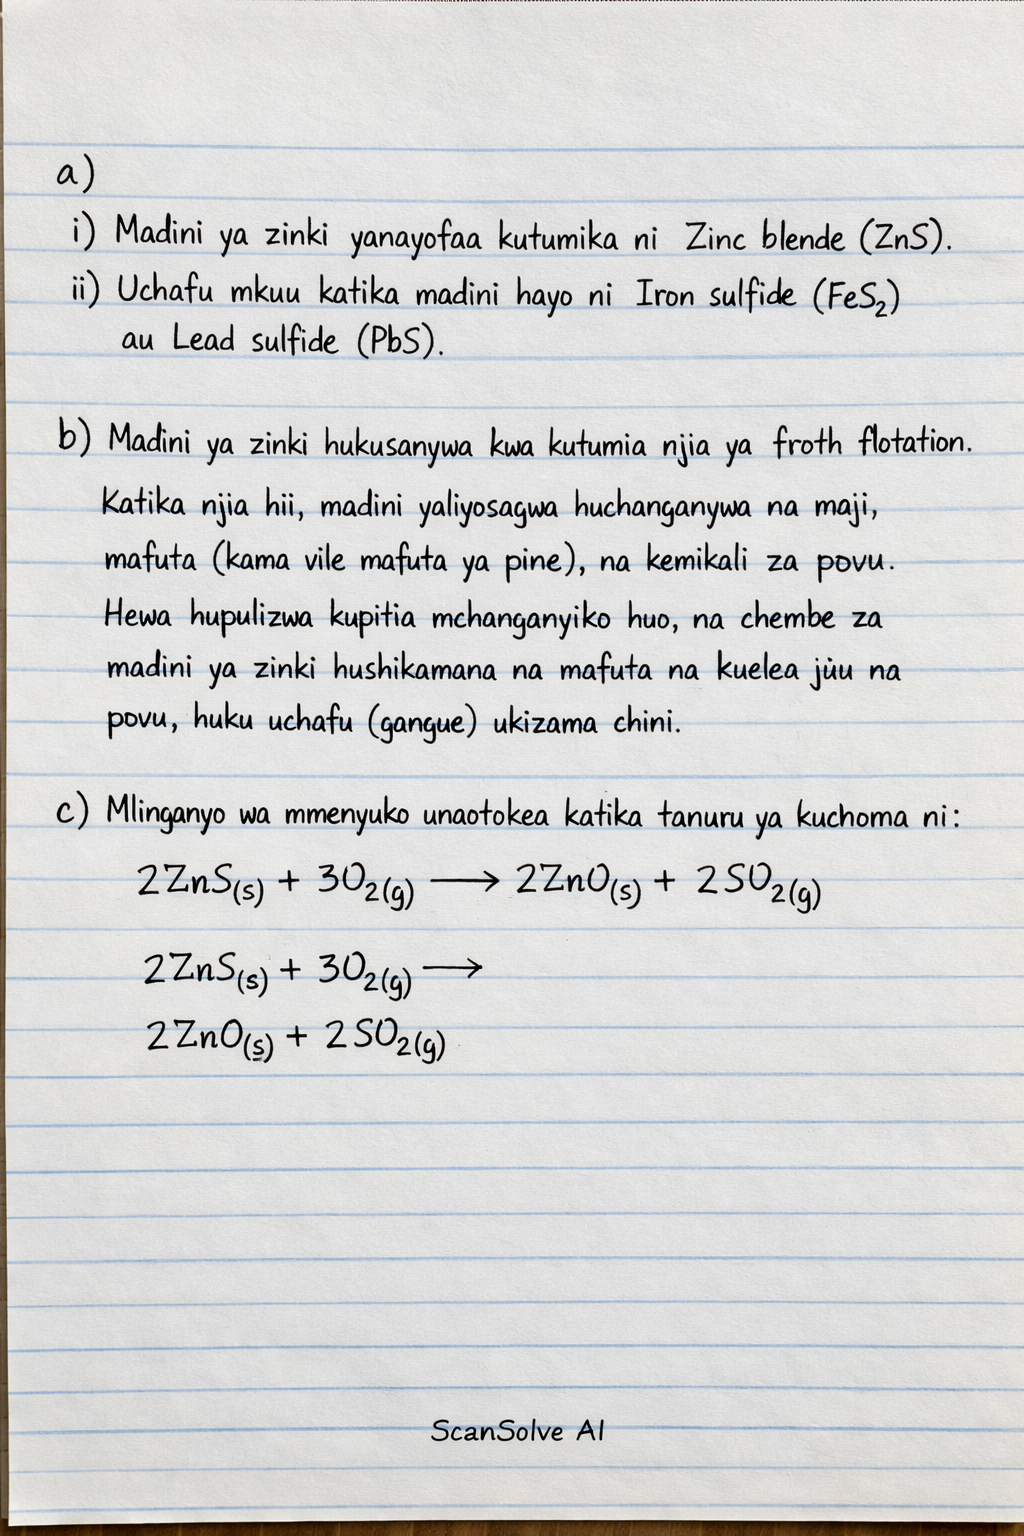 a)
i) Madini ya zinki yanayofaa kutumika ni Zinc blende (ZnS).
ii) Uchafu mkuu katika madini hayo ni Iron sulfide (FeS₂)
au Lead sulfide (PbS).
b) Madini ya zinki hukusanywa kwa kutumia njia ya froth flotation.
Katika njia hii, madini yaliyosagwa huchanganywa na maji,
mafuta (kama vile mafuta ya pine), na kemikali za povu.
Hewa hupulizwa kupitia mchanganyiko huo, na chembe za
madini ya zinki hushikamana na mafuta na kuelea juu na
povu, huku uchafu (gangue) ukizama chini.
c) Mlinganyo wa mmenyuko unaotokea katika tanuru ya kuchoma ni:
2ZnS(s) + 3O₂(g) ⟶ 2ZnO(s) + 2SO₂(g)
2ZnS(s) + 3O₂(g) ⟶
2ZnO(s) + 2SO₂(g)
ScanSolve AI